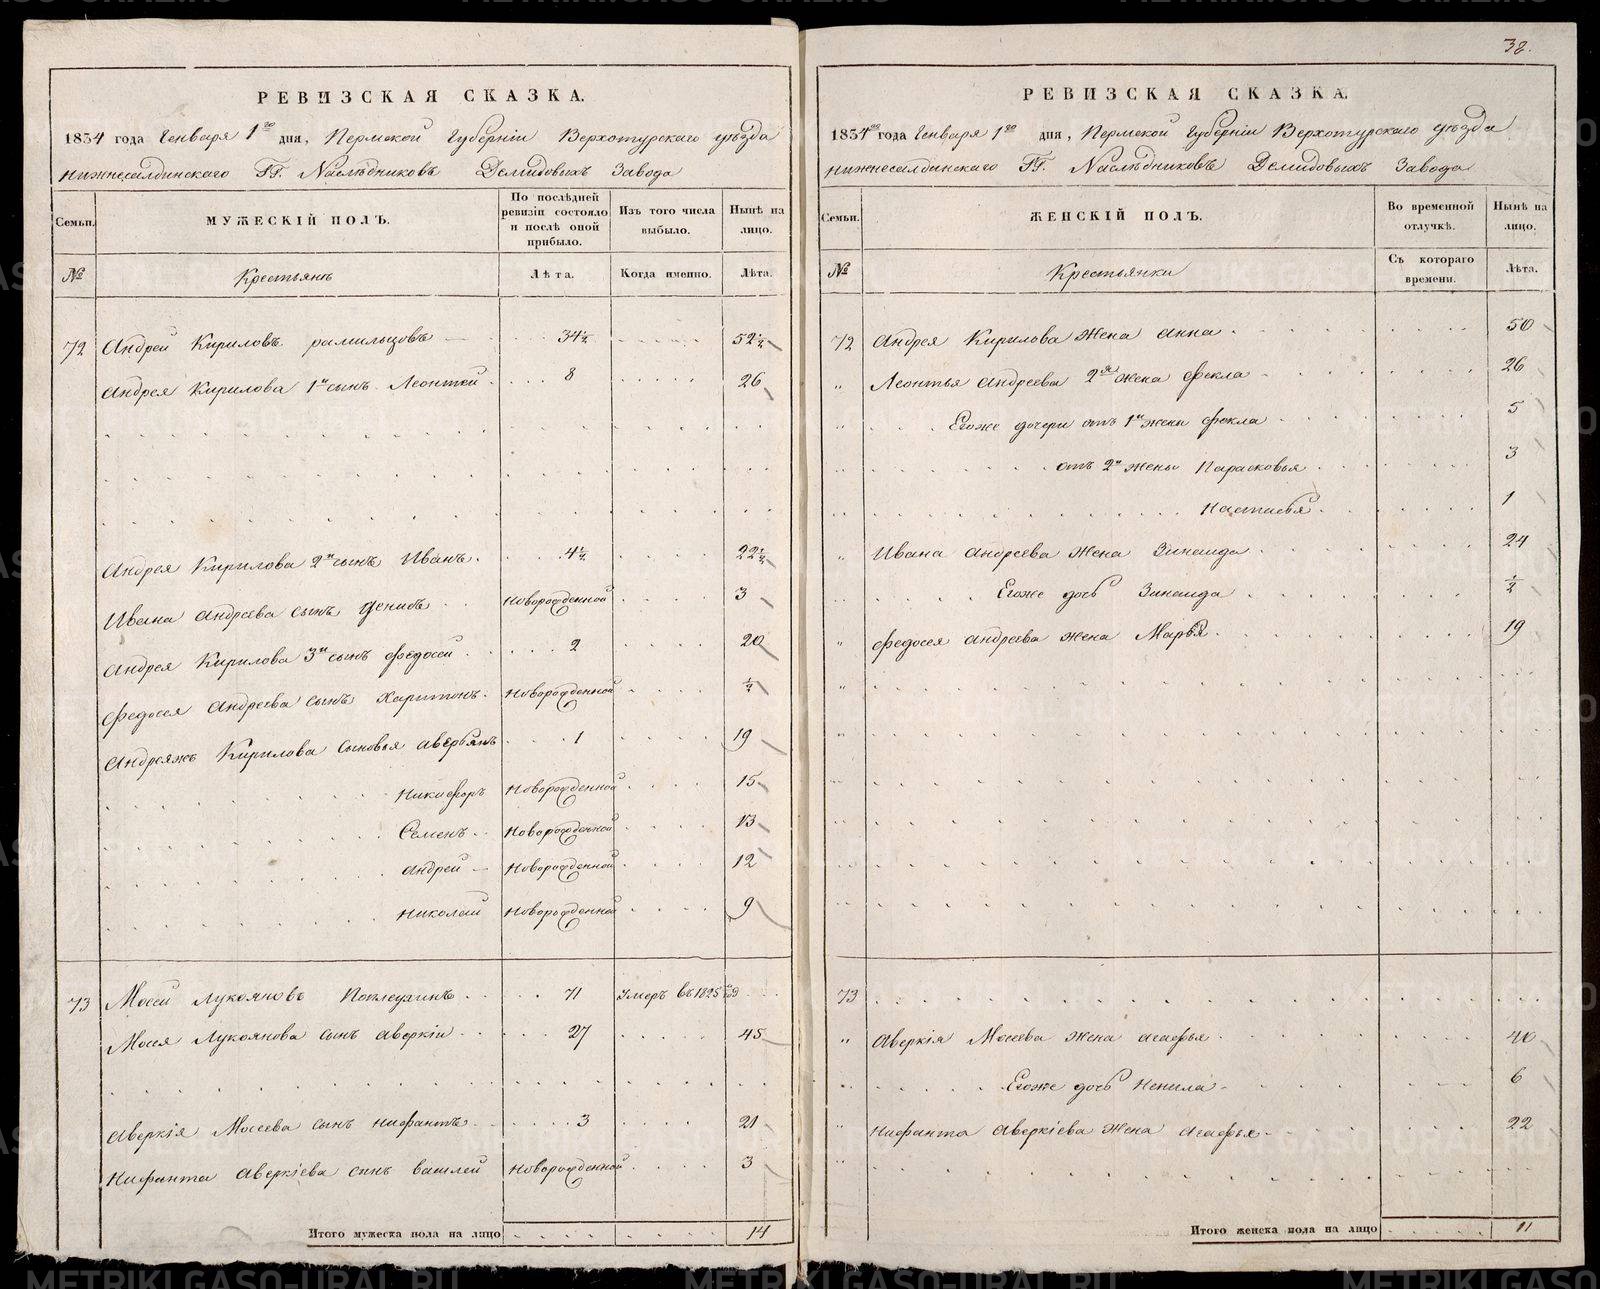 РЕВИЗСКАЯ СКАЗКА.
1834 года Генваря 1го дня, Пермской Губерніи Верхотурскаго уѣзда
Нижнесалдинскаго ГГ. Наслѣдниковъ Демидовыхъ Завода
Семьи. МУЖЕСКІЙ ПОЛЪ. По послѣдней ревизіи состояло и послѣ оной прибыло. Изъ того числа выбыло. Нынѣ на лицо.
№ Крестьянъ Лѣта. Когда именно. Лѣта.
72 Андрей Кириловъ 34½ 52½
Андрея Кирилова 1й сынъ Леонтей 8 26
Андрея Кирилова 2й сынъ Иванъ 4½ 22½
Ивана Андреева сынъ Денисъ Новорожденной 3
Андрея Кирилова 3й сынъ Федосей 2 20
Федосея Андреева сынъ Харитонъ Новорожденной ½
Андреяжъ Кирилова сыновья Аверьянъ 1 19
Никифоръ Новорожденной 15
Семенъ Новорожденной 13
Андрей Новорожденной 12
Николай Новорожденной 9
73 Мосей Лукояновъ 71 Умеръ въ 1825 год
Мосея Лукоянова сынъ Аверкій 27 45
Аверкія Мосеева сынъ Нифантъ 3 21
Нифанта Аверкіева сынъ Василей Новорожденной 3
Итого мужеска пола на лицо 14
38.
РЕВИЗСКАЯ СКАЗКА.
1834го года Генваря 1го дня, Пермской Губерніи Верхотурскаго уѣзда
Нижнесалдинскаго ГГ. Наслѣдниковъ Демидовыхъ Завода
Семьи. ЖЕНСКІЙ ПОЛЪ. Во временной отлучкѣ. Нынѣ на лицо.
№ Крестьянки Съ котораго времени. Лѣта.
72 Андрея Кирилова жена Анна 50
„ Леонтья Андреева 2я жена Фекла 26
Егоже дочери отъ 1й жены Фекла 5
отъ 2й жены Парасковья 3
Настасья 1
„ Ивана Андреева жена Зинаида 24
Егоже дочь Зинаида ½
„ Федосея Андреева жена Марья 19
73
„ Аверкія Мосеева жена Агафья 40
Егоже дочь Ненила 6
„ Нифанта Аверкіева жена Агафья 22
Итого женска пола на лицо 11
METRIKI.GASO-URAL.RU